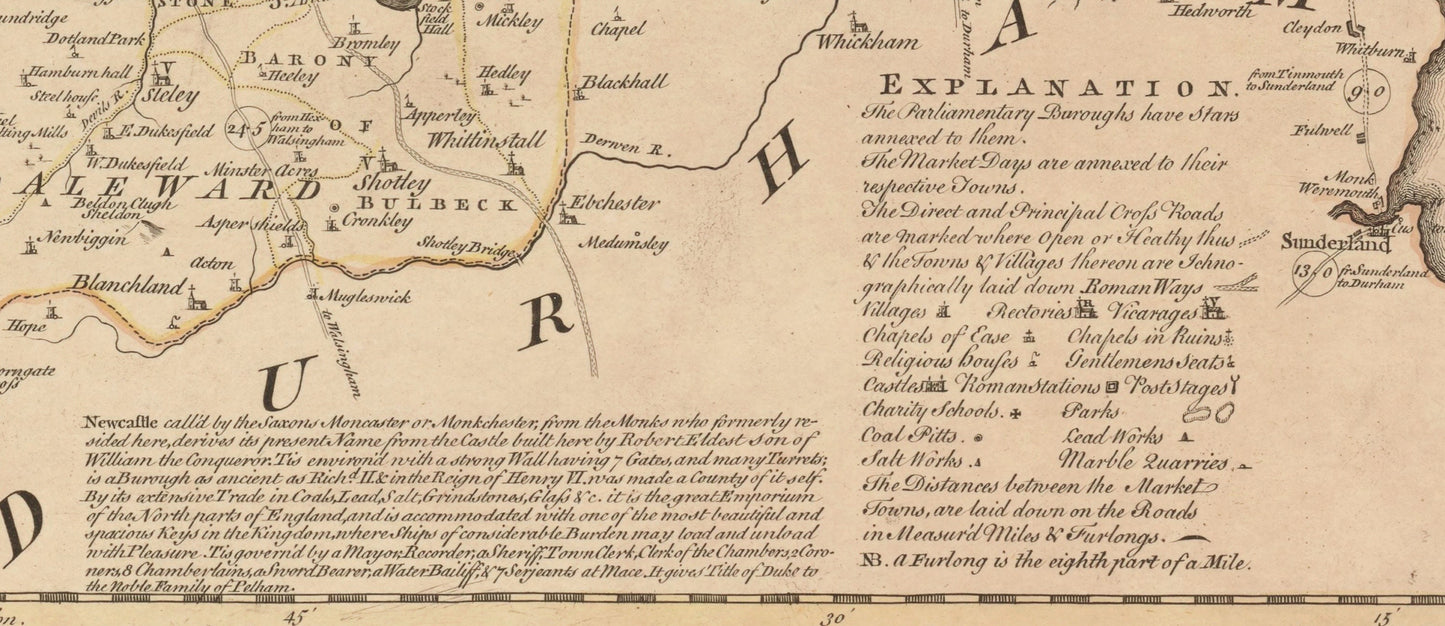 STONE
Mickley
Stockfield Hall
Chapel
Whickham
to Durham
A
Hedworth
M
Cleydon
Whitburn
Dotland Park
Bromley
BARONY
Heeley
Hamburn hall
Steel house
Sleley
Devils R.
Hedley
Blackhall
Apperley
E. Dukesfield
24·5
from Hex
ham to
Walsingham
OF
Whittinstall
Derwen R.
H
W. Dukesfield
Minster Acres
V
Shotley
ALE WARD
BULBECK
Beldon Clugh
Sheldon
Cronkley
Ebchester
Aspershields
Newbiggin
Shotley Bridge
Medumsley
Acton
Blanchland
Mugleswick
to Walsingham
Hope
R
U
D
EXPLANATION.
The Parliamentary Buroughs have Stars
annexed to them.
The Market Days are annexed to their
respective Towns.
The Direct and Principal Croſs Roads
are marked where Open or Heathy thus
& the Towns & Villages thereon are Ichno-
graphically laid down. Roman Ways
Villages Rectories R Vicarages V
Chapels of Ease Chapels in Ruins
Religious houſes Gentlemens Seats
Castles Roman Stations Post Stages
Charity Schools. Parks
Coal Pitts. Lead Works
Salt Works. Marble Quarries
The Distances between the Market
Towns, are laid down on the Roads
in Measur'd Miles & Furlongs.
NB. a Furlong is the eighth part of a Mile.
from Tinmouth
to Sunderland
9·0
Fulwell
Monk
Weremouth
Sunderland
13·0
fr. Sunderland
to Durham
Newcaſtle call'd by the Saxons Moncaster or Monkchester, from the Monks who formerly re-
sided here, derives its present Name from the Castle built here by Robert Eldest son of
William the Conqueror. Tis environ'd with a strong Wall having 7 Gates, and many Turrets;
is a Burough as ancient as Richd. II & in the Reign of Henry VI. was made a County of it self.
By its extensive Trade in Coals, Lead, Salt, Grindstones, Glaſs &c. it is the great Emporium
of the North parts of England, and is accommodated with one of the most beautiful and
spacious Keys in the Kingdom, where Ships of considerable Burden may load and unload
with Pleasure. Tis govern'd by a Mayor, Recorder, a Sheriff, Town Clerk, Clerk of the Chambers, 2 Coro-
ners, 8 Chamberlains, a Sword Bearer, a Water Bailiff, & 7 Serjeants at Mace. It gives Title of Duke to
the Noble Family of Pelham.
45'
30'
15'